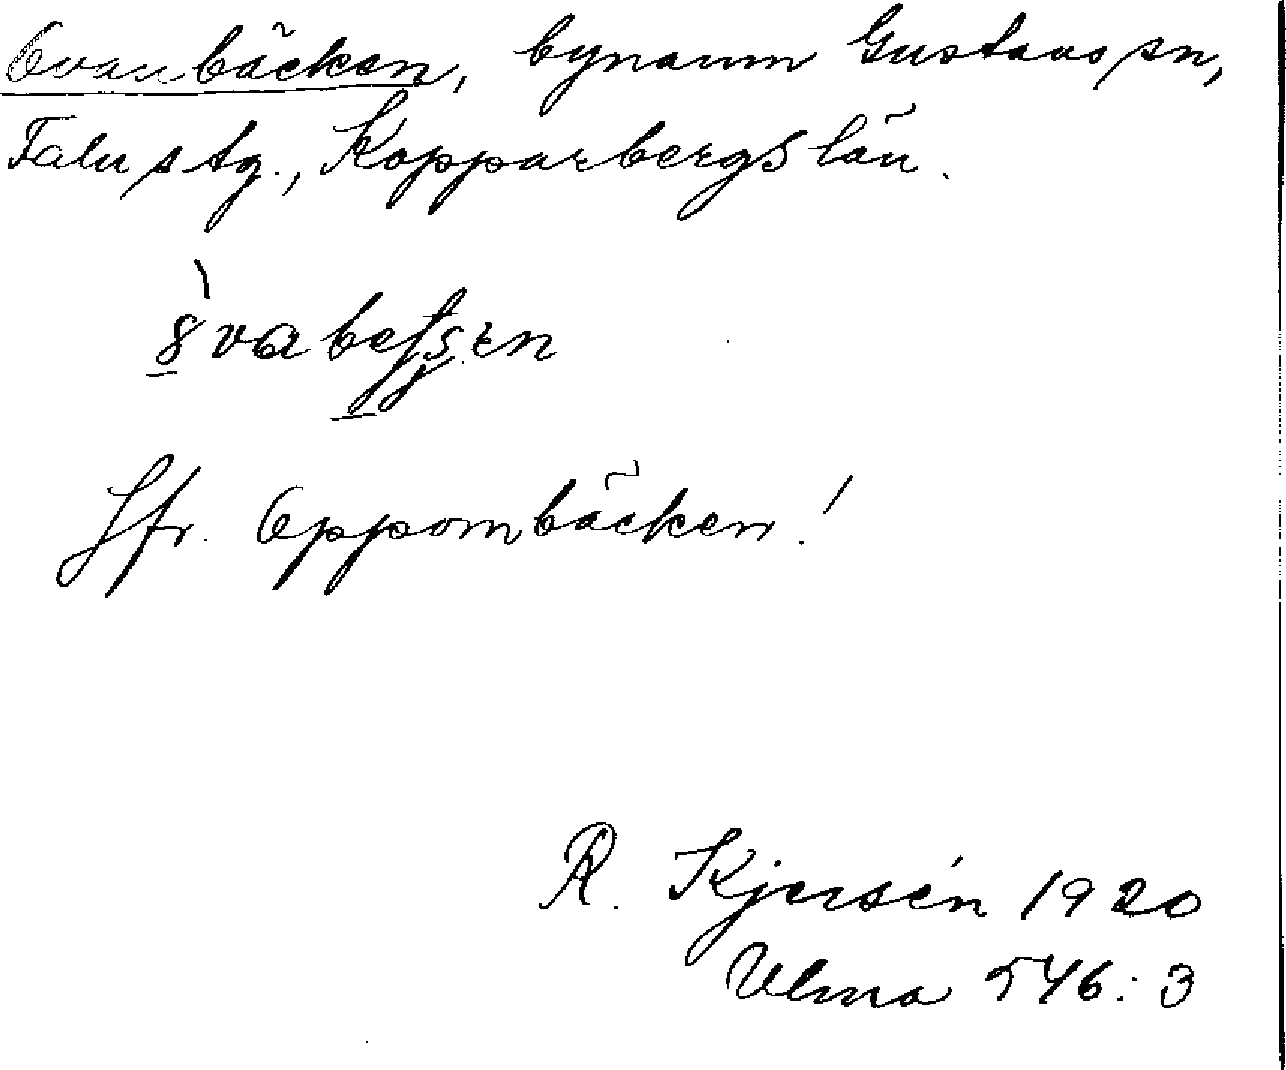 Ovanbäcken, bynamn Gustavs sn,
Falu s tg., Kopparbergs län.
Jfr. Oppombäcken!
R. Kjersén 1920
Ulma 546:3